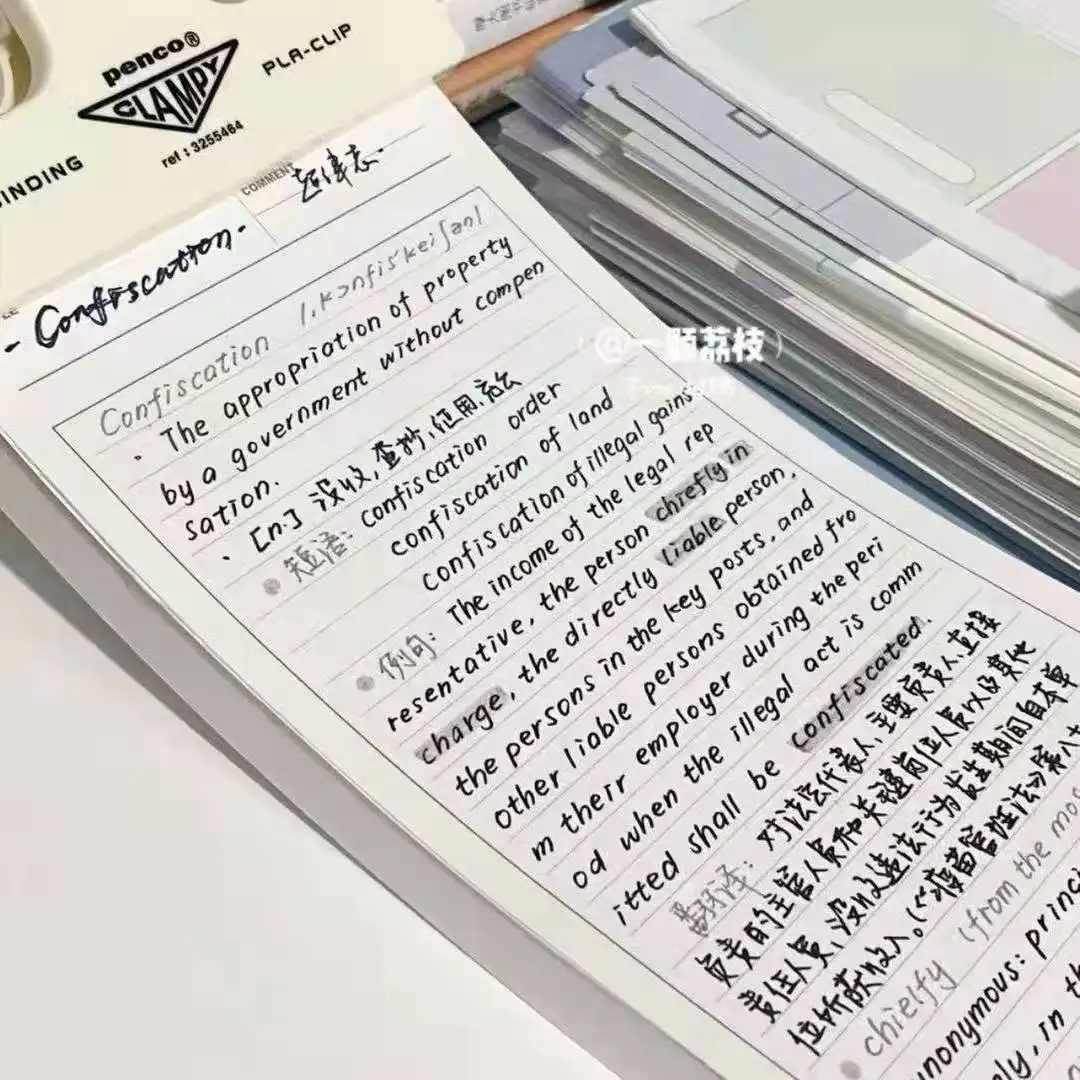 penco®
CLAMPY
PLA-CLIP
ref : 3255464
INDING
COMMENT
- Confiscation -
Confiscation /ˌkɔnfiskeiʃən/
· The appropriation of property
by a government without compen
sation.
· [n.] 没收,查抄,征用,充公
短语: confiscation order
confiscation of land
confiscation of illegal gains.
例句: The income of the legal rep
resentative, the person chiefly in
charge, the directly liable person,
the persons in the key posts, and
other liable persons obtained fro
m their employer during the peri
od when the illegal act is comm
itted shall be confiscated.
翻译: 对法定代表人,主要负责人,直接
负责的主管人员和关键岗位人员以及其他
责任人员,没收违法行为发生期间自本单
位所获收入。(《疫苗管理法》第八十
chielfy (from the mos
nonymous: princi
ly, in th
@一颗荔枝